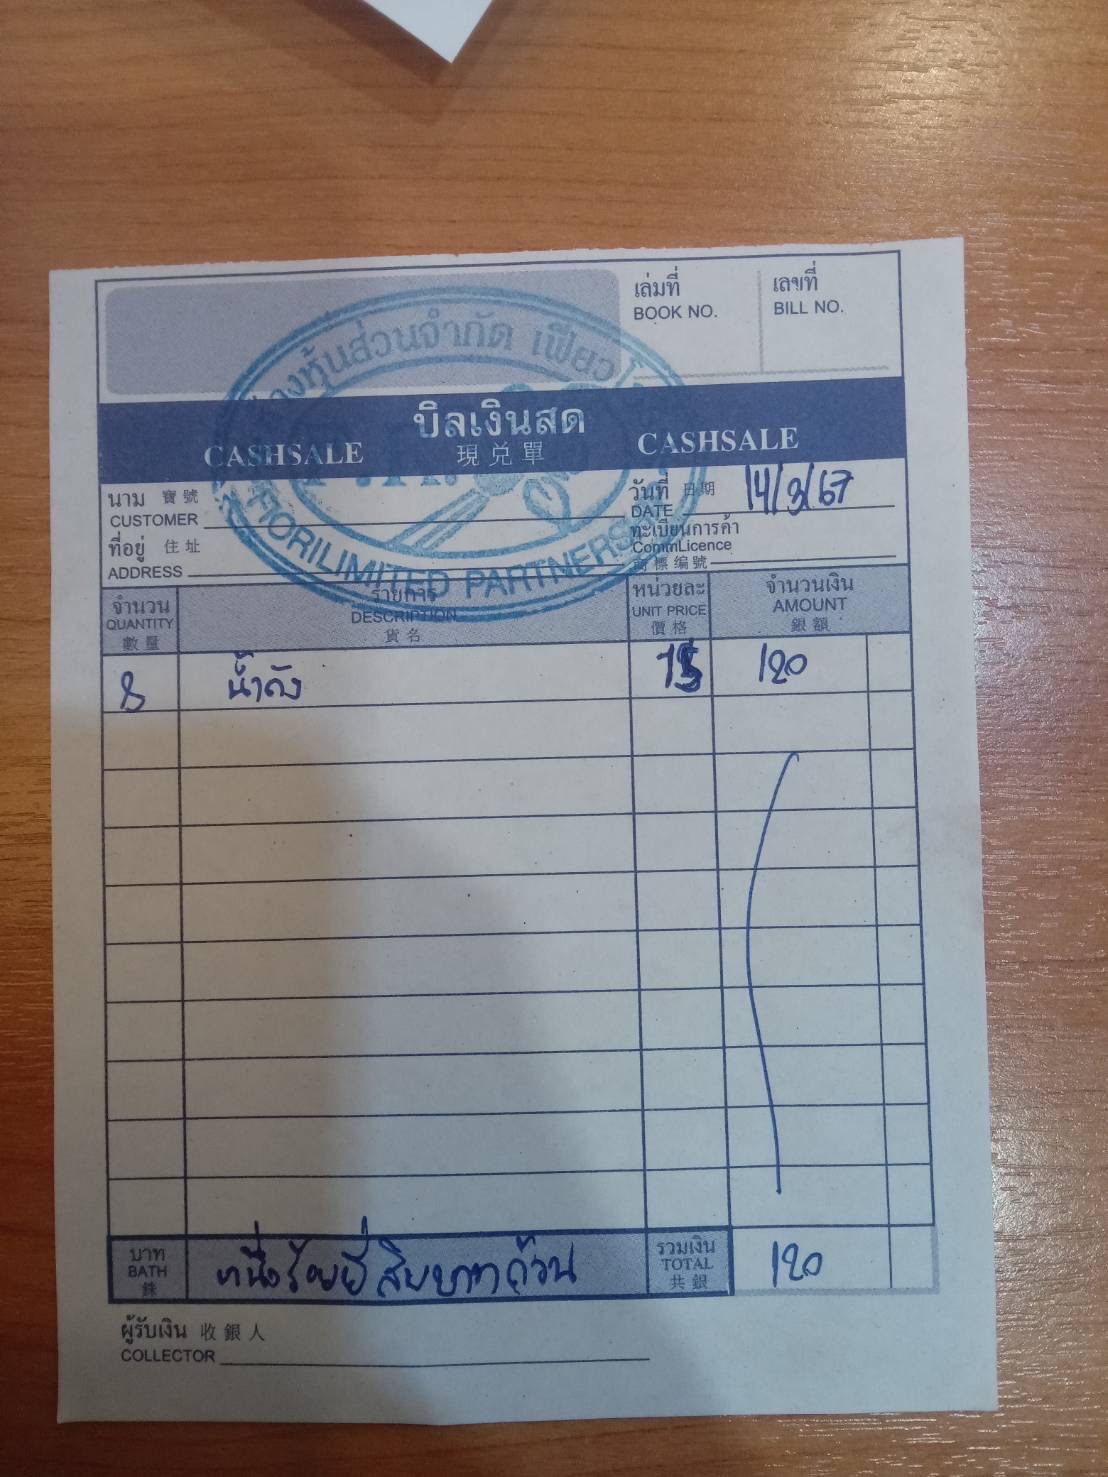 เล่มที่ เลขที่
BOOK NO. BILL NO.
ห้างหุ้นส่วนจำกัด เฟียว
บิลเงินสด
CASHSALE 現兑單 CASHSALE
LIMITED PARTNERS
นาม 寶號 วันที่ 日期 14/3/67
CUSTOMER DATE
ที่อยู่ 住址 ทะเบียนการค้า
ADDRESS CommLicence
商標編號
จำนวน รายการ หน่วยละ จำนวนเงิน
QUANTITY DESCRIPTION UNIT PRICE AMOUNT
數量 貨名 價格 銀額
8 น้ำถัง 15 120
บาท หนึ่งร้อยยี่สิบบาทถ้วน รวมเงิน 120
BATH TOTAL
銖 共銀
ผู้รับเงิน 收銀人
COLLECTOR